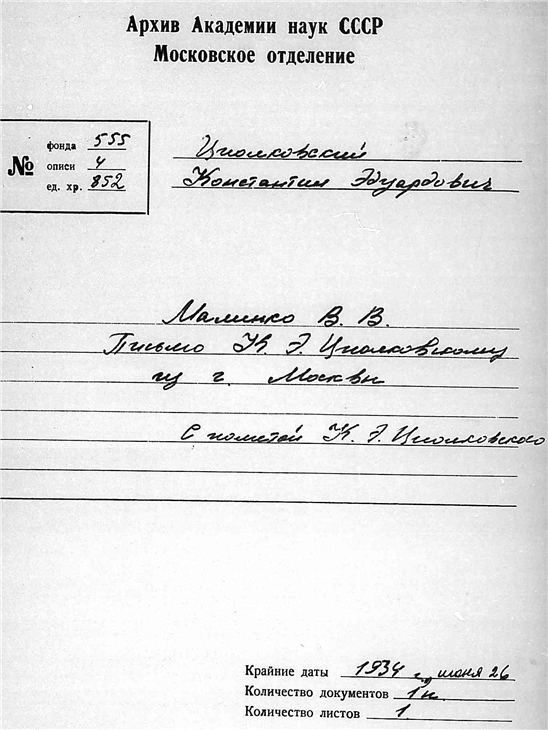 Архив Академии наук СССР
Московское отделение
№
фонда 555
описи 4
ед. хр. 852
Циолковский
Константин Эдуардович
Малинко В. В.
Письмо К. Э. Циолковскому
из г. Москвы
С пометой К. Э. Циолковского
Крайние даты 1934 г. июня 26
Количество документов 1
Количество листов 1